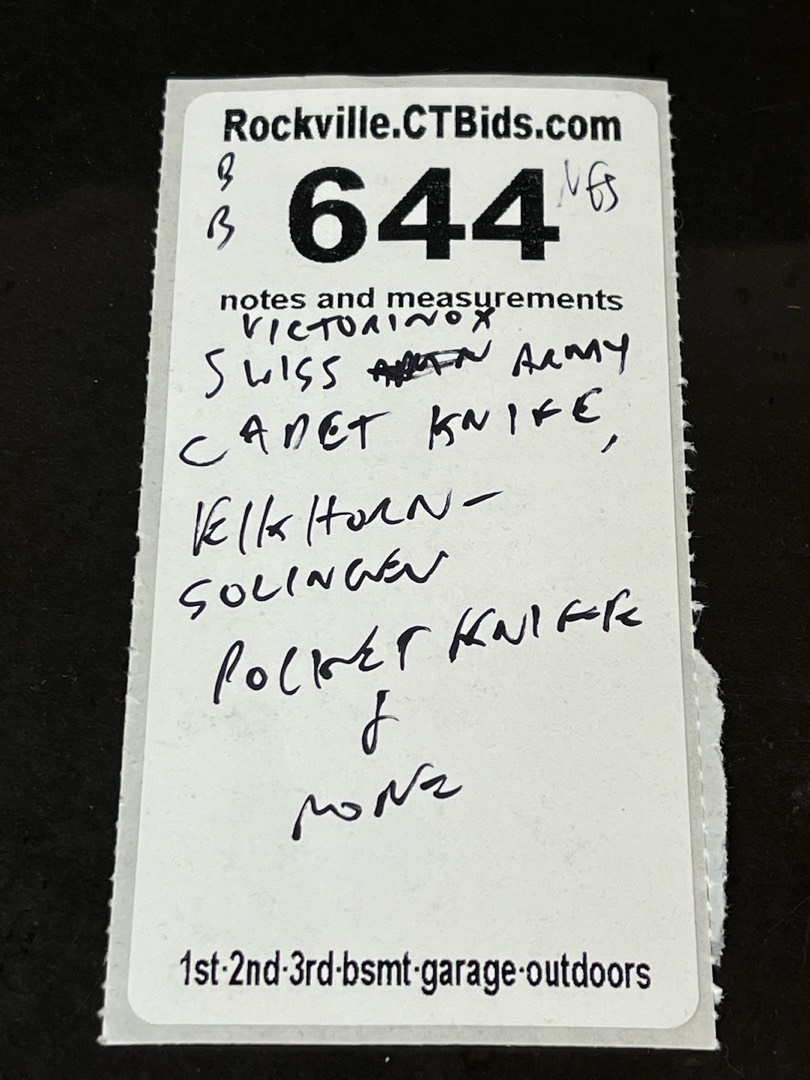 Rockville.CTBids.com
B
B
644
notes and measurements
VICTORINOX
SWISS ARMY
CADET KNIFE,
ElkHORN-
SOLINGEN
POCKET KNIFE
&
MORE
1st·2nd·3rd·bsmt·garage·outdoors